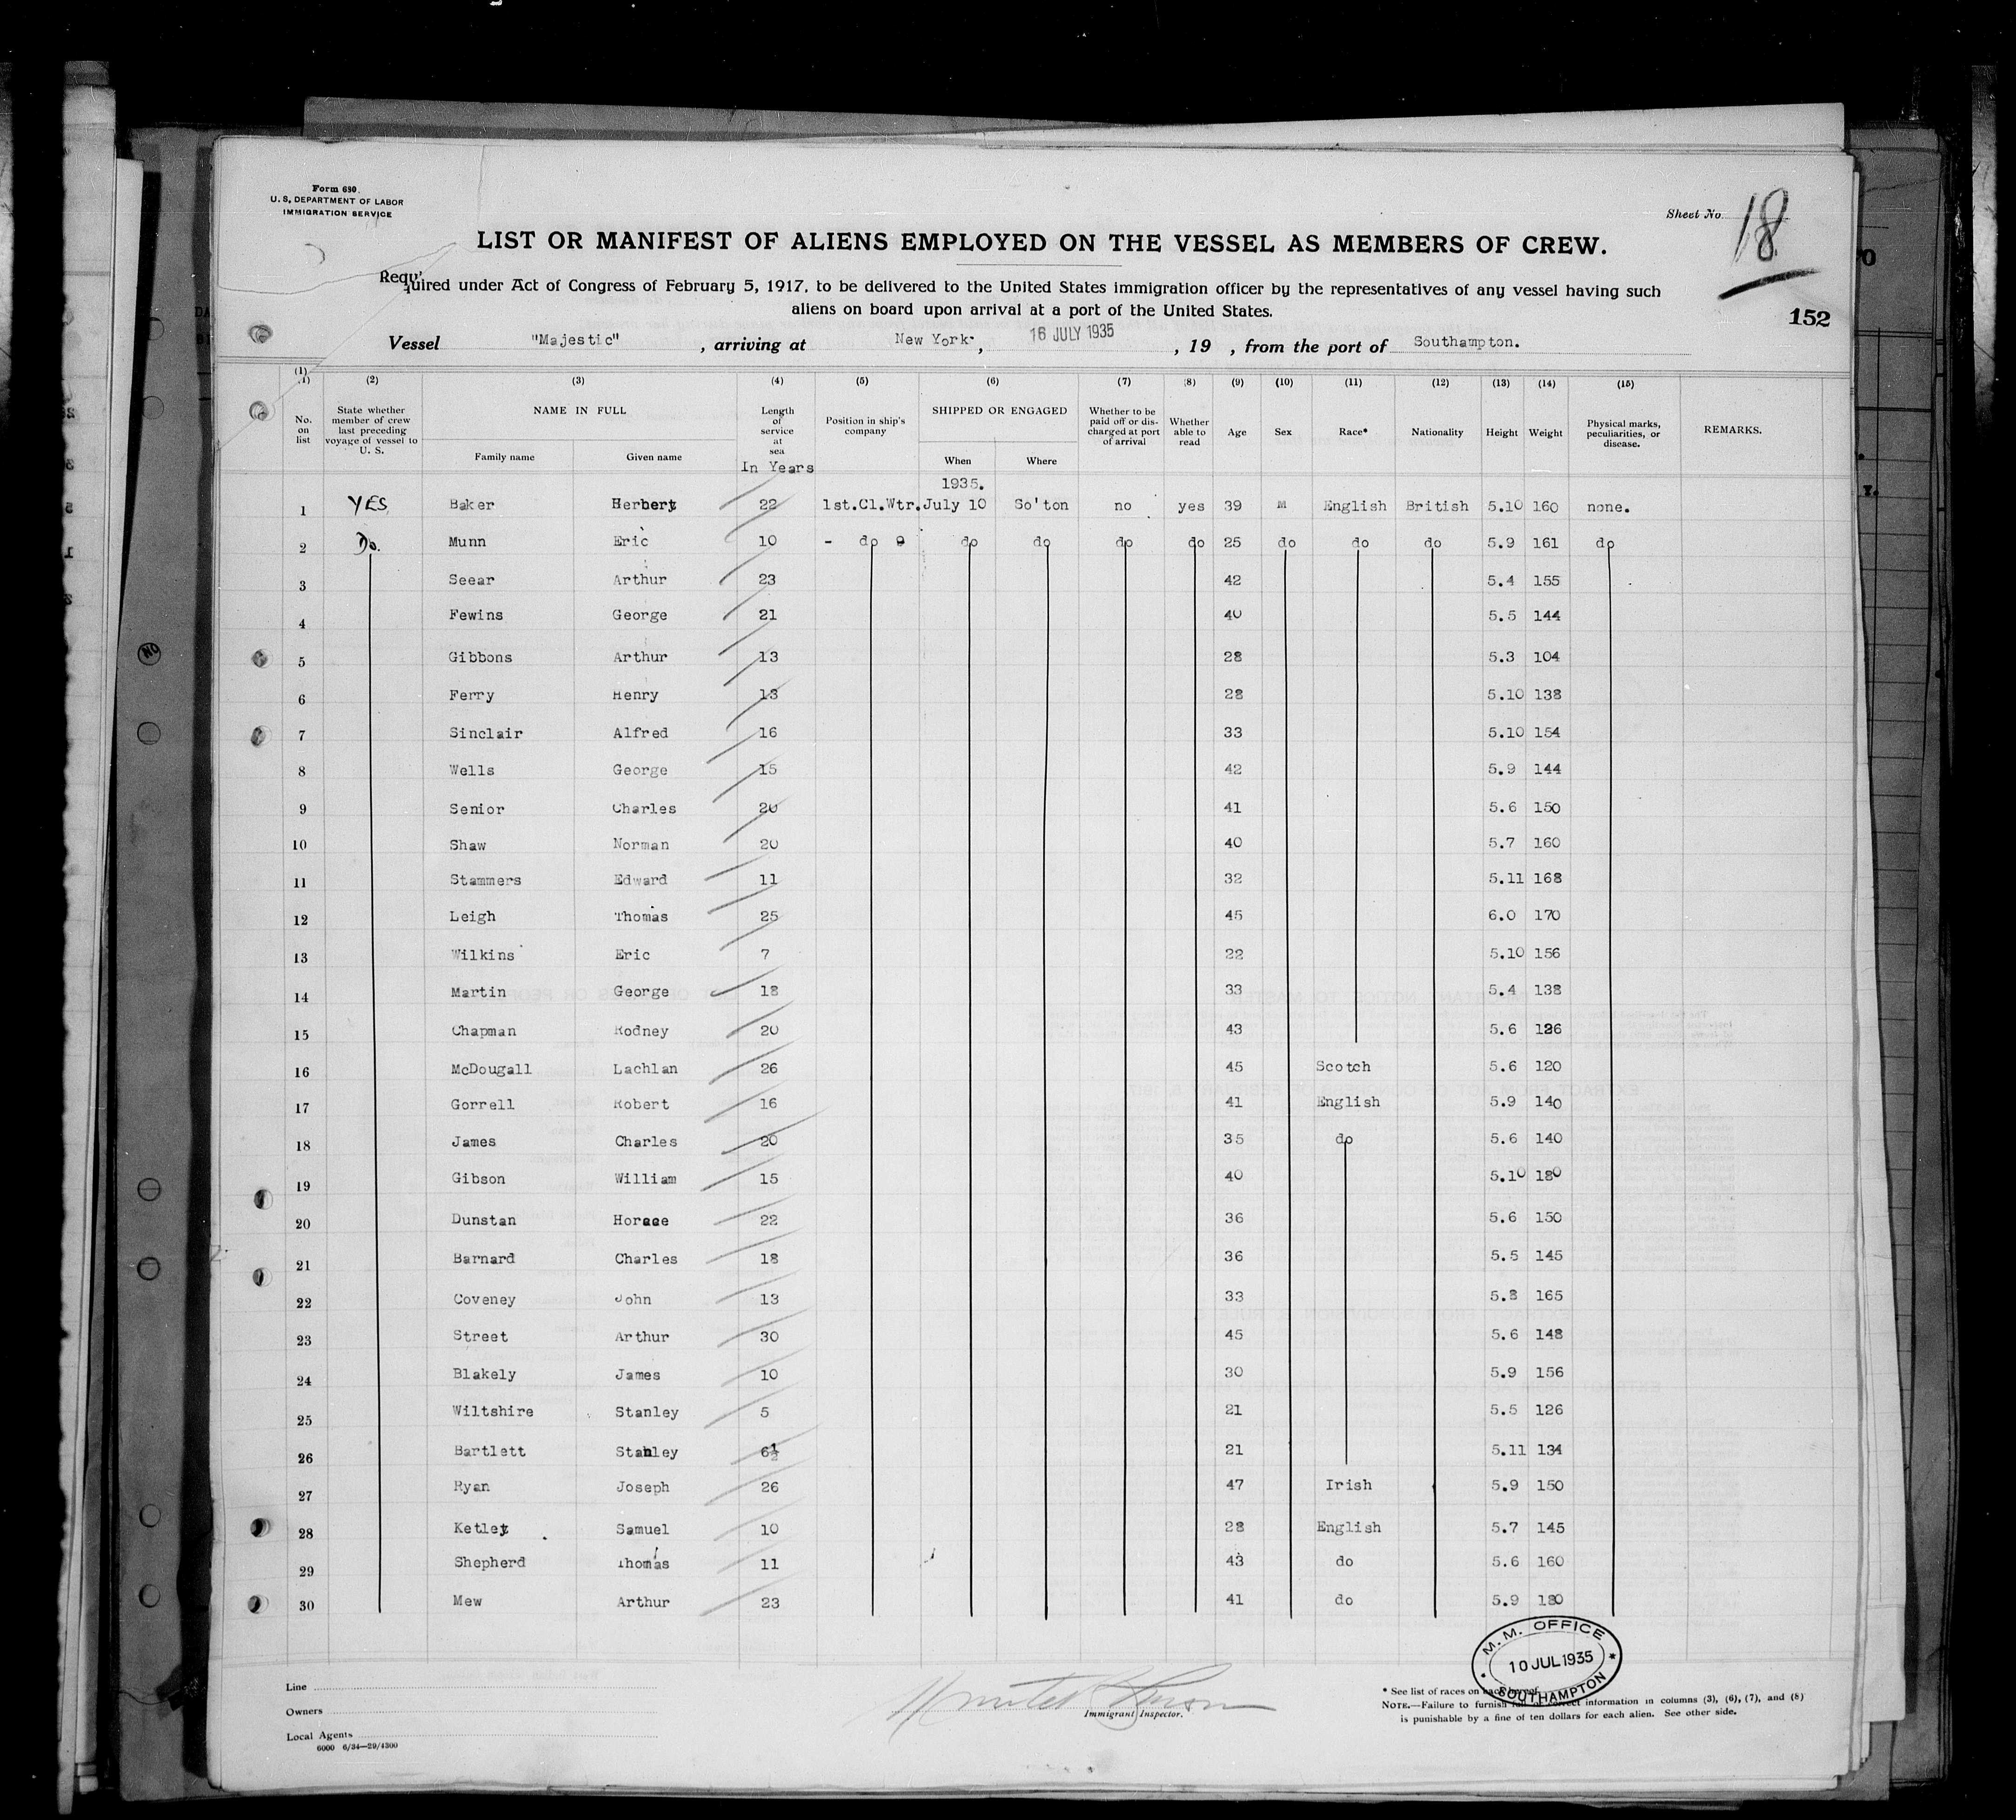 Form 680.
U. S. DEPARTMENT OF LABOR
IMMIGRATION SERVICE
Sheet No. 18
LIST OR MANIFEST OF ALIENS EMPLOYED ON THE VESSEL AS MEMBERS OF CREW.
Required under Act of Congress of February 5, 1917, to be delivered to the United States immigration officer by the representatives of any vessel having such
aliens on board upon arrival at a port of the United States.
152
Vessel "Majestic", arriving at New York, 16 JULY 1935, 19 , from the port of Southampton.
(1) (2) (3) (4) (5) (6) (7) (8) (9) (10) (11) (12) (13) (14) (15)
No. on list State whether member of crew last preceding voyage of vessel to U. S. NAME IN FULL Family name Given name Length of service at sea In Years Position in ship's company SHIPPED OR ENGAGED When Where Whether to be paid off or discharged at port of arrival Whether able to read Age Sex Race* Nationality Height Weight Physical marks, peculiarities, or disease. REMARKS.
1935.
1 YES Baker Herbert 22 1st.Cl.Wtr. July 10 So'ton no yes 39 M English British 5.10 160 none.
2 Do. Munn Eric 10 - do do do do do 25 do do do 5.9 161 do
3 Seear Arthur 23 42 5.4 155
4 Fewins George 21 40 5.5 144
5 Gibbons Arthur 13 28 5.3 104
6 Ferry Henry 13 28 5.10 138
7 Sinclair Alfred 16 33 5.10 154
8 Wells George 15 42 5.9 144
9 Senior Charles 20 41 5.6 150
10 Shaw Norman 20 40 5.7 160
11 Stammers Edward 11 32 5.11 168
12 Leigh Thomas 25 45 6.0 170
13 Wilkins Eric 7 22 5.10 156
14 Martin George 18 33 5.4 138
15 Chapman Rodney 20 43 5.6 126
16 McDougall Lachlan 26 45 Scotch 5.6 120
17 Gorrell Robert 16 41 English 5.9 140
18 James Charles 20 35 do 5.6 140
19 Gibson William 15 40 5.10 180
20 Dunstan Horace 22 36 5.6 150
21 Barnard Charles 18 36 5.5 145
22 Coveney John 13 33 5.8 165
23 Street Arthur 30 45 5.6 148
24 Blakely James 10 30 5.9 156
25 Wiltshire Stanley 5 21 5.5 126
26 Bartlett Stanley 6½ 21 5.11 134
27 Ryan Joseph 26 47 Irish 5.9 150
28 Ketley Samuel 10 28 English 5.7 145
29 Shepherd Thomas 11 43 do 5.6 160
30 Mew Arthur 23 41 do 5.9 180
M. M. OFFICE
10 JUL 1935
SOUTHAMPTON
Line
Owners
Local Agents
6000 6/34—29/4300
Immigrant Inspector.
* See list of races on back hereof.
NOTE.—Failure to furnish full or correct information in columns (3), (6), (7), and (8)
is punishable by a fine of ten dollars for each alien. See other side.